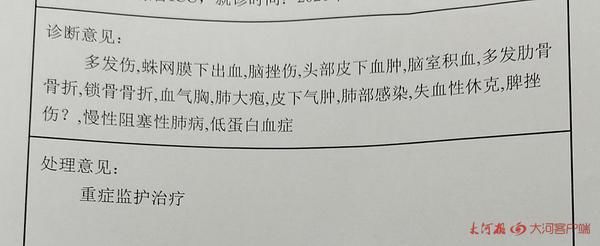 诊断意见：
多发伤,蛛网膜下出血,脑挫伤,头部皮下血肿,脑室积血,多发肋骨
骨折,锁骨骨折,血气胸,肺大疱,皮下气肿,肺部感染,失血性休克,脾挫
伤？,慢性阻塞性肺病,低蛋白血症
处理意见：
重症监护治疗
大河报 大河客户端